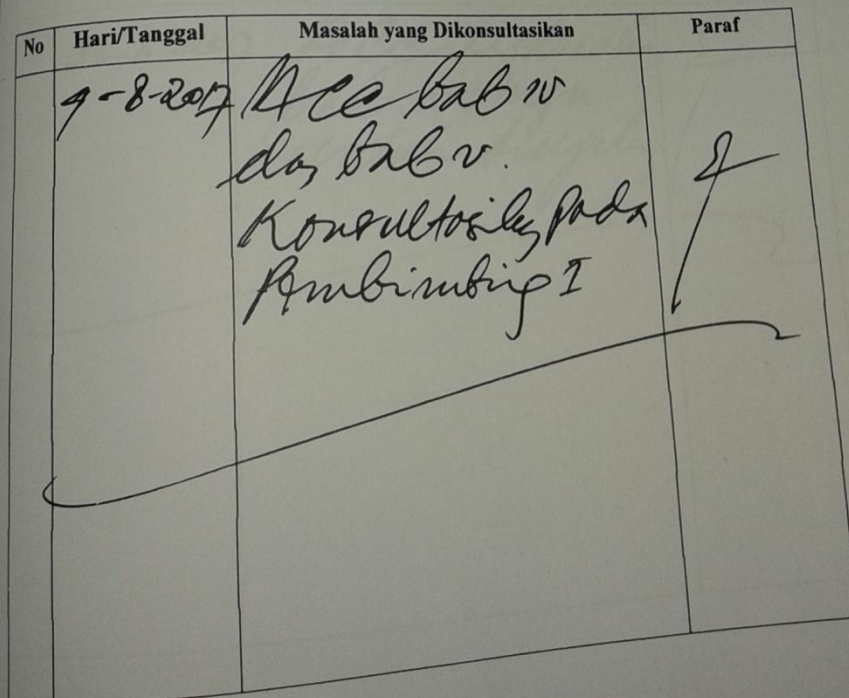 No Hari/Tanggal Masalah yang Dikonsultasikan Paraf
9-8-2017 Acc bab IV
dan bab V.
Konsultasikan pada
Pembimbing I